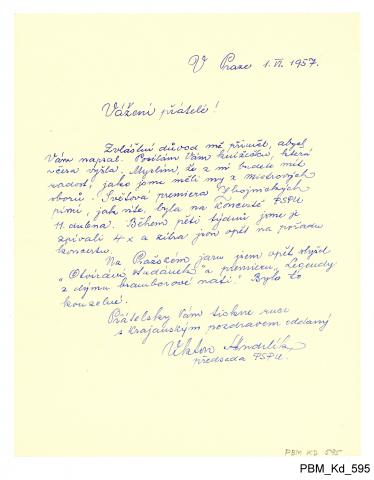 V Praze 1. VI. 1957.
Vážení přátelé!
Zvláštní důvod mě přiměl, abych
Vám napsal. Posílám Vám knížečku, která
včera vyšla. Myslím, že z ní budete mít
radost, jako jsme měli my z mistrových
sborů. Světová premiera Vlkojnických
písní, jak víte, byla na koncertě PSPU
11. dubna. Během pěti týdnů jsme je
zpívali 4 x a zítra jsou opět na pořadu
koncertu.
Na Pražském jaru jsem opět slyšel
"Otvírání studánek" a premieru "Legendy
z dýmu bramborové nati." Bylo to
kouzelné.
Přátelsky Vám tiskne ruce
s krajanským pozdravem oddaný
předseda PSPU.
PBM KD 595
PBM_Kd_595